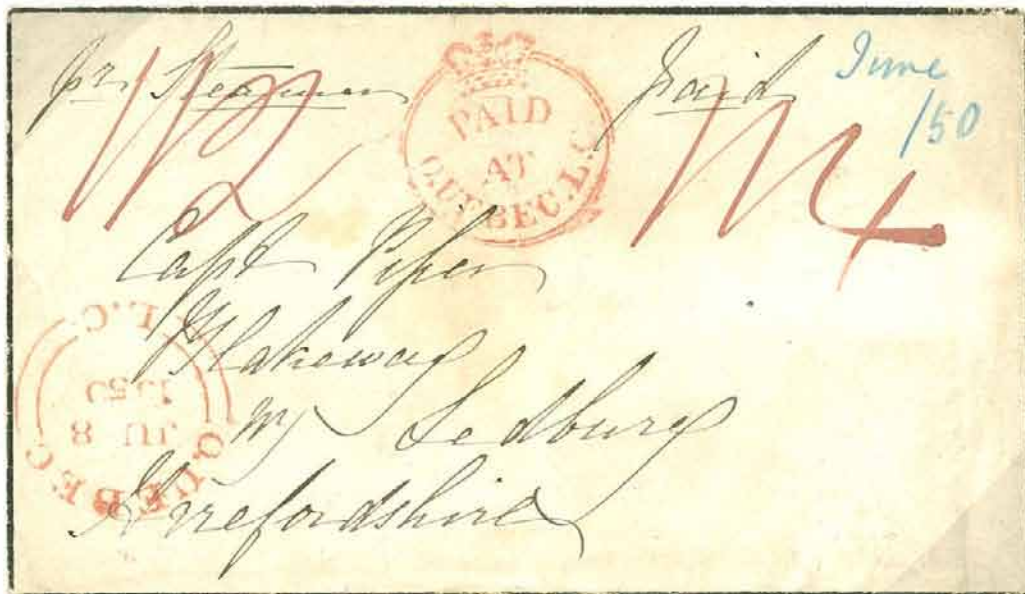 pr Steamer
paid
June
/50
1/2
PAID
AT
QUEBEC. L.C.
1/4
Capt Piper
Blakeway
nr Ledbury
Herefordshire
QUEBEC
L.C.
JU 8
1850